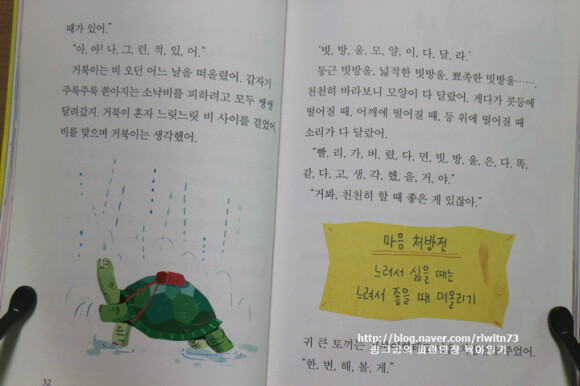 때가 있어."
"아, 아! 나, 그, 런, 적, 있, 어."
거북이는 비 오던 어느 날을 떠올렸어. 갑자기
주룩주룩 쏟아지는 소낙비를 피하려고 모두 쌩쌩
달려갔지. 거북이 혼자 느릿느릿 비 사이를 걸었어.
비를 맞으며 거북이는 생각했어.
32
'빗, 방, 울, 모, 양, 이, 다, 달, 라.'
둥근 빗방울, 넓적한 빗방울, 뾰족한 빗방울…….
천천히 바라보니 모양이 다 달랐어. 게다가 콧등에
떨어질 때, 어깨에 떨어질 때, 등 위에 떨어질 때
소리가 다 달랐어.
"빨, 리, 가, 버, 렸, 다, 면, 빗, 방, 울, 은, 다, 똑,
같, 다, 고, 생, 각, 했, 을, 거, 야."
"거봐, 천천히 할 때 좋은 게 있잖아."
마음 처방전
느려서 싫을 때는
느려서 좋을 때 떠올리기
귀 큰 토끼는
주었어.
"한, 번, 해, 볼, 게."
http://blog.naver.com/rlwltn73